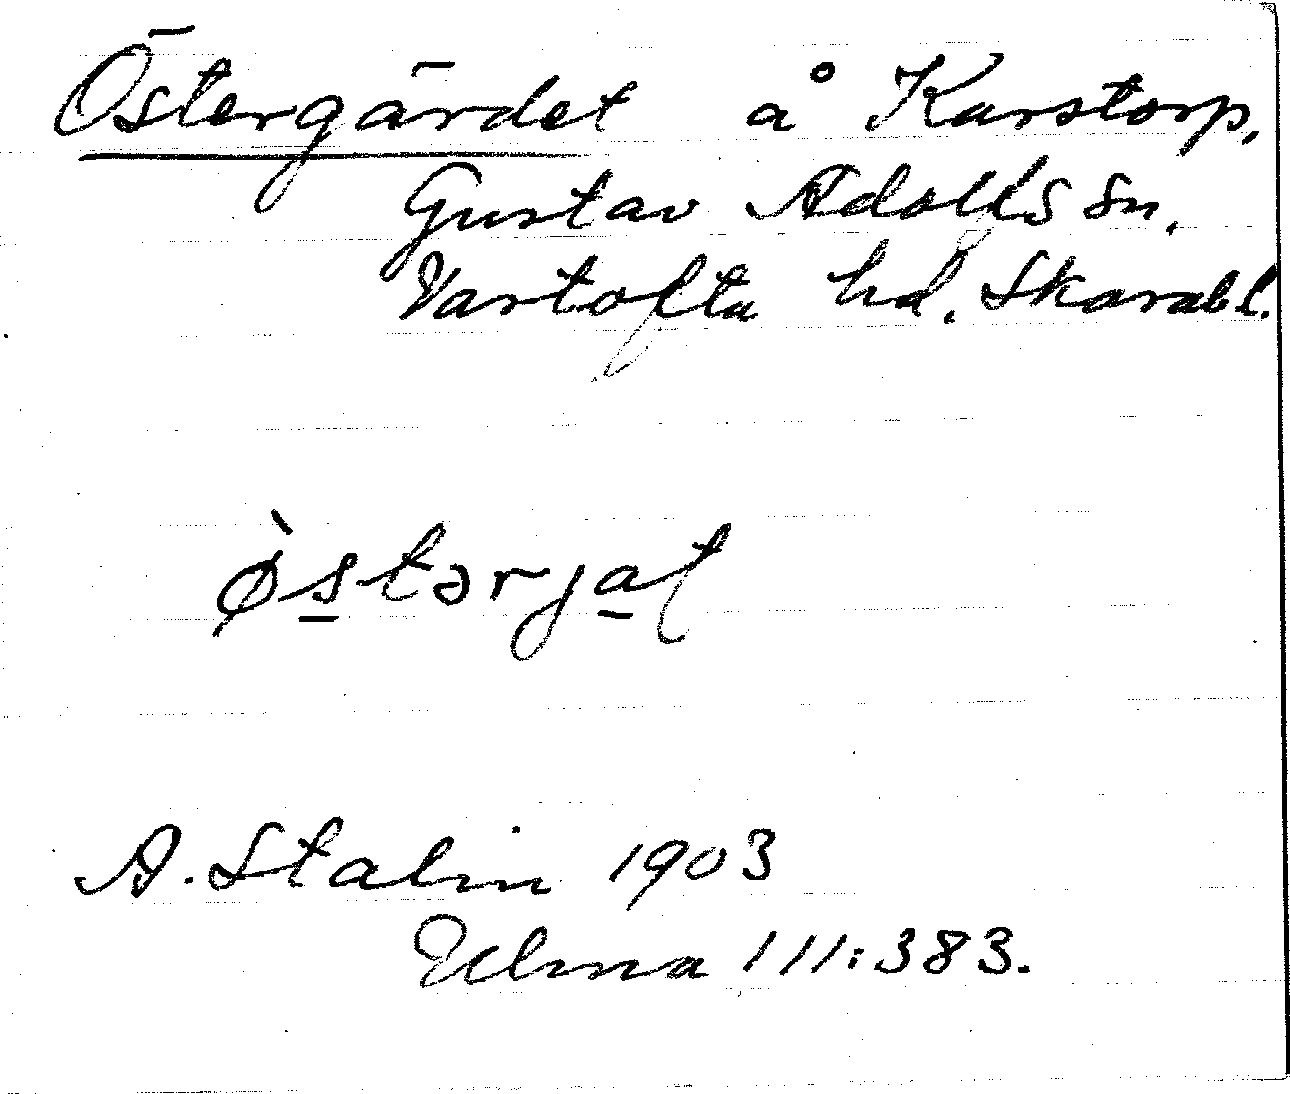 Östergärdet å Karstorp,
Gustav Adolfs sn.
Vartofta hd. Skarabl.
ø̀stərjat
A. Stalin 1903
Ulma 111:383.